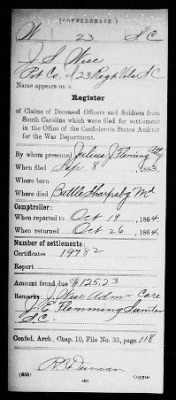 (CONFEDERATE.)
W | 23 | S C
J. S. Wise
Pvt Co. I 23 Regt Vols S C
Name appears on a
Register
of Claims of Deceased Officers and Soldiers from
South Carolina which were filed for settlement
in the Office of the Confederate States Auditor
for the War Department.
By whom presented Julius J Fleming Atty
When filed Sep 8, 1863.
Where born
Where died Battle Sharpsbg Md
Comptroller:
When reported to Oct 19, 1864.
When returned Oct 26, 1864.
Number of settlements:
Certificates 19782
Report
Amount found due $125.23
Remarks: J. Wise Adm Care
J. E. Flemming Sumter
S.C.
Confed. Arch., Chap. 10, File No. 33, page 118
R. H. Duncan
Copyist.